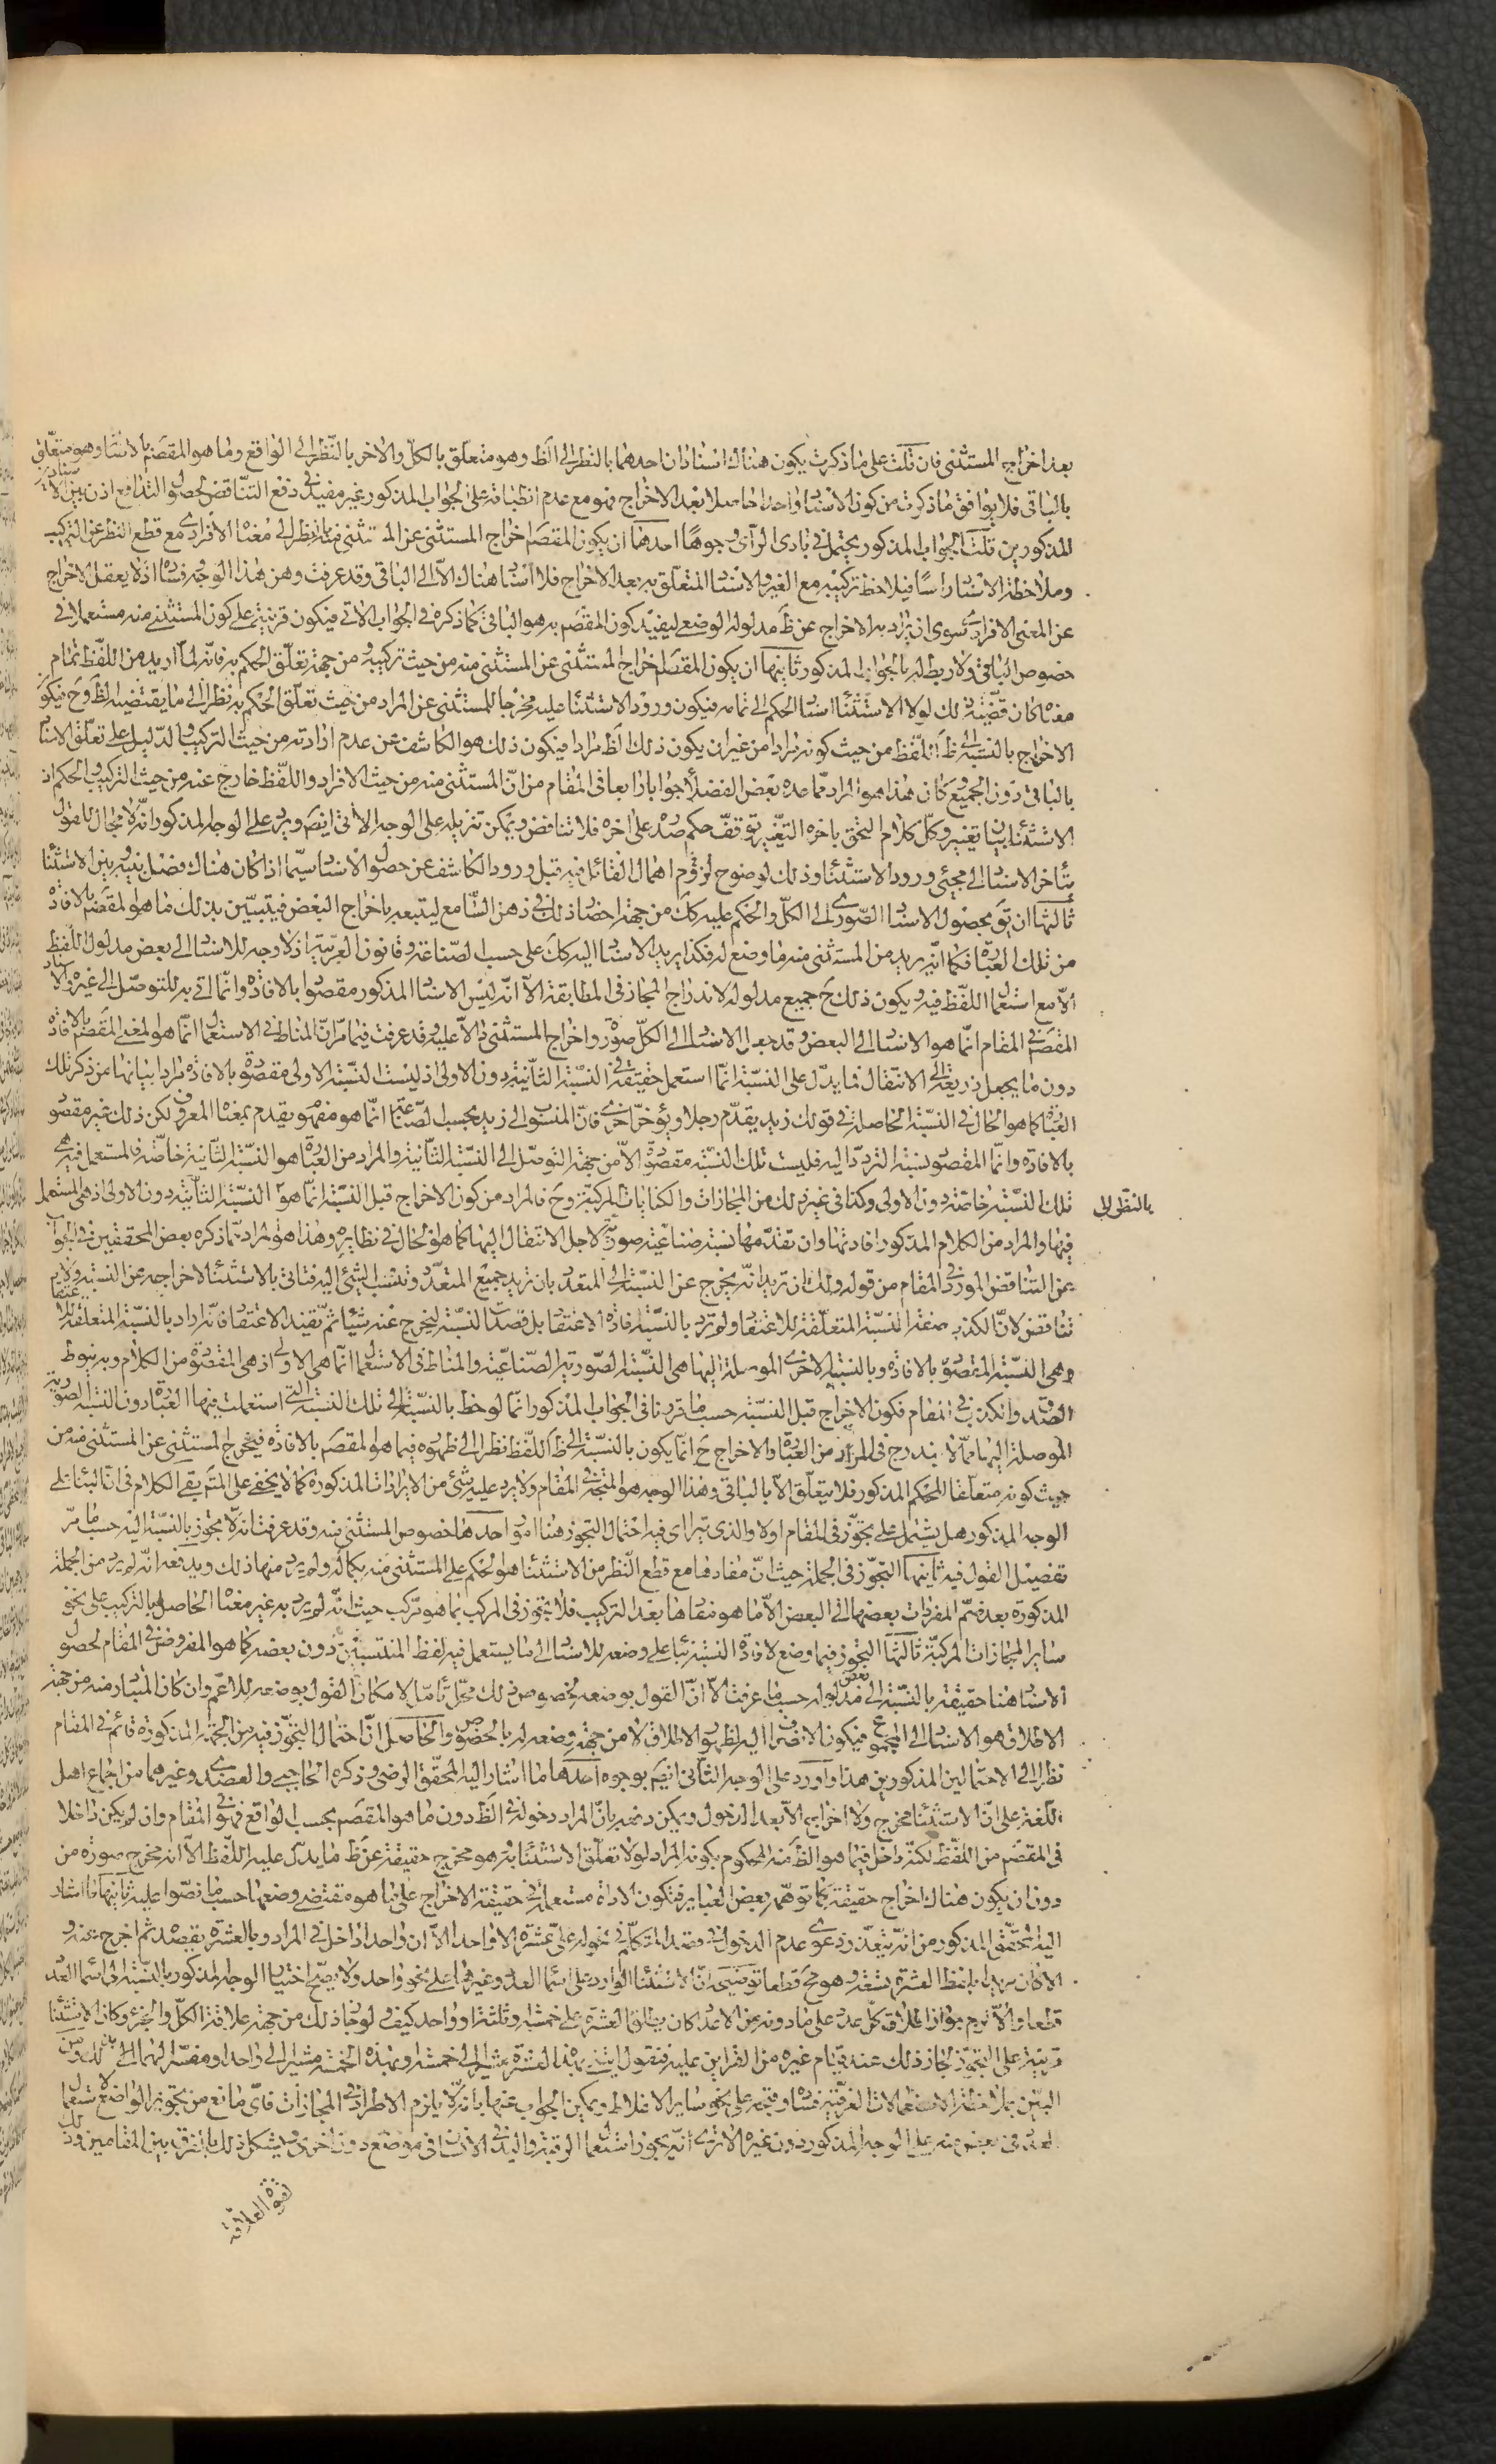 بعد اخراج المستثنى فان قلت على ما ذكرت يكون هناك اسنادان احدهما بالنظر الى الظ وهو متعلق بالكل والاخر بالنظر الى الواقع وما هو المقصم بالاسنا وهو متعلق
بالباقى فلا يوافق ما ذكرت من كون الاسناد واحدا حاصلا بعد الاخراج فهو مع عدم انطباقه على الجواب المذكور غير مفيد فى دفع التناقض لحصول التدافع اذن بين الاسنادين
المذكورين قلت الجواب المذكور يحتمل فى بادى الرأى وجوها احدها ان يكون المقصم اخراج المستثنى عن المستثنى منه بالنظر الى معناه الافرادى مع قطع النظر عن التركيب
وملاحظة الاسناد راسا فيلاحظ تركيبه مع الغير والاسناد المتعلق به بعد الاخراج فلا اسناد هناك الا الى الباقى وقد عرفت وهن هذا الوجه وفساده اذ لا يعقل الاخراج
عن المعنى الافرادى سوى ان يراد به الاخراج عن ظ مدلوله الوضعى ليفيد كون المقصم به هو الباقى كما ذكره فى الجواب الاتى فيكون قرينة على كون المستثنى منه مستعملا فى
خصوص الباقى ولا ربط له بالجواب المذكور ثانيها ان يكون المقصم اخراج المستثنى عن المستثنى منه من حيث تركيبه ومن جهة تعلق الحكم به فانه لما اريد من اللفظ تمام
معناه كان قضية ذلك لولا الاستثناء اسناد الحكم الى تمامه فيكون ورود الاستثناء عليه مخرجا للمستثنى عن المراد من حيث تعلق الحكم به نظرا الى ما يقتضيه الظ وح فيكون
الاخراج بالنسبة الى ظ اللفظ من حيث كونه مرادا من غير ان يكون ذلك الظ مرادا فيكون ذلك هو الكاشف عن عدم ارادته من حيث التركيب والدليل على تعلق الاسناد
بالباقى دون الجميع وكان هذا هو المراد مما عده بعض الفضلا جوابا رابعا فى المقام من ان المستثنى منه من حيث الافراد واللفظ خارج عنه من حيث التركيب والحكم اذ
الاستثناء بيان تغيير وكل كلام التحق باخره التغيير توقف حكم صدره على اخره فلا تناقض ويمكن تنزيله على الوجه الاتى ايضم ويرد على الوجه المذكور انه لا مجال للقول
بتأخر الاسناد الى مجيئ ورود الاستثناء وذلك لوضوح لزوم اهمال القائل فيه قبل ورود الكاشف عن حصول الاسناد سيما اذا كان هناك فصل بينه وبين الاستثنا
ثالثها ان يق بحصول الاسناد الصورى الى الكل والحكم عليه كك من جهة احضار ذلك فى ذهن السامع ليتبعه باخراج البعض فيتبين بذلك ما هو المقصم بالافاده
من تلك العبارة فكما انه يريد من المستثنى منه ما وضع له فكذا يريد الاسناد اليه كك على حسب الصناعة وقانون العربية اذ لا وجه للاسناد الى بعض مدلول اللفظ
الا مع استعمال اللفظ فيه ويكون ذلك ح جميع مدلوله لاندراج المجاز فى المطابقة الا انه ليس الاسناد المذكور مقصودا بالافاده وانما اتى به للتوصل الى غيره والاسناد
المقصم فى المقام انما هو الاسناد الى البعض وقد جعل الاسناد الى الكل صورة واخراج المستثنى دالا عليه وقد عرفت فيما مر ان المناط فى الاستعمال انما هو المعنى المقصم بالافاده
دون ما يجعل ذريعة الى الانتقال فما يدل على النسبة انما استعمل حقيقة فى النسبة الثانية دون الاولى اذ ليست النسبة الاولى مقصودة بالافاده مرادا بيانها من ذكر تلك
العبارة كما هو الحال فى النسبة الحاصلة فى قولك زيد يقدم رجلا ويؤخر اخرى فان المنسوب الى زيد بحسب الصناعة انما هو مفهوم يقدم بمعناه المعروف لكن ذلك غير مقصود
بالافاده وانما المقصود نسبة التردد اليه فليست تلك النسبة مقصودة الا من جهة التوصل الى النسبة الثانية والمراد من العبارة هو النسبة الثانية خاصة فالمستعمل فيه هى
بالنظر الى
تلك النسبة خاصة دون الاولى وكذا فى غير ذلك من المجازات والكنايات المركبة وح فالمراد من كون الاخراج قبل النسبة انما هو النسبة الثانية دون الاولى اذ هى المستعمل
فيها والمراد من الكلام المذكور افادتها وان تقدمها نسبة صناعية صورية لاجل الانتقال اليها كما هو الحال فى نظايره وهذا هو المراد مما ذكره بعض المحققين فى الجواب
عن التناقض المورد فى المقام من قوله ولك ان تريد انه يخرج عن النسبة الى المتعدد بان تريد جميع المتعدد وتنسب الشئ اليه فتاتى بالاستثناء لاخراجه عن النسبة ولا
تناقض لان الكذب صفة النسبة المتعلقة للاعتقاد ولم ترد بالنسبة افادة الاعتقاد بل قصدت النسبة ليخرج عنه شيئا ثم تفيد الاعتقاد فانه اراد بالنسبة المتعلقة للاعتقاد
وهى النسبة المقصودة بالافاده وبالنسبة الاخرى الموصلة اليها هى النسبة الصورية الصناعية والمناط فى الاستعمال انما هى الاولى اذ هى المقصودة من الكلام وبه ينوط
الصدق والكذب فى المقام فكون الاخراج قبل النسبة حسب ما قررنا فى الجواب المذكور انما لوحظ بالنسبة الى تلك النسبة التى استعملت فيها العبارة دون النسبة الصورية
الموصلة اليها مما لا يندرج فى المراد من العبارة والاخراج ح انما يكون بالنسبة الى ظ اللفظ نظرا الى ظهوره فيما هو المقصم بالافاده فيخرج المستثنى عن المستثنى منه من
حيث كونه متعلقا للحكم المذكور فلا يتعلق الا بالباقى وهذا الوجه هو المتجه فى المقام ولا يرد عليه شئ من الايرادات المذكورة كما لا يخفى على المتأمل بقى الكلام فى ان البناء على
الوجه المذكور هل يشتمل على تجوز فى المقام اولا والذى يترا اى فيه احتمال التجوز هنا امور احدها خصوص المستثنى منه وقد عرفت انه لا تجوز بالنسبة اليه حسب ما مر
تفصيل القول فيه ثانيها التجوز فى الجملة حيث ان مفادها مع قطع النظر من الاستثناء هو الحكم على المستثنى منه بكماله ولم يرد منها ذلك ويدفعه انه لم يرد من الجملة
المذكورة بعد ضم المفردات بعضها الى البعض الا ما هو مفادها بعد التركيب فلا تجوز فى المركب بما هو مركب حيث انه لم يرد به غير معناه الحاصل بالتركيب على نحو
ساير المجازات المركبة ثالثها التجوز فيما وضع لافادة النسبة بناء على وضعه للاسناد الى ما يستعمل فيه لفظ المنتسبين دون بعضه كما هو المفروض فى المقام لحصول
الاسناد هنا حقيقة بالنسبة الى بعض مدلوله حسب ما عرفت الا ان القول بوضعه لخصوص ذلك محل تامل لامكان القول بوضعه للاعم وان كان المتبادر منه من جهة
الاطلاق هو الاسناد الى المجموع فيكون الانصراف اليه لظهور الاطلاق لا من جهة وضعه له بالخصوص والحاصل ان احتمال التجوز فيه من الجهة المذكورة قائم فى المقام
نظرا الى الاحتمالين المذكورين هذا واورد على الوجه الثانى ايضم بوجوه احدها ما اشار اليه المحقق الرضى وذكره الحاجبى والعضدى وغيرهما من اجماع اهل
اللغة على ان الاستثناء مخرج ولا اخراج الا بعد الدخول ويمكن دفعه بان المراد دخوله فى الظ دون ما هو المقصم بحسب الواقع فهو فى المقام وان لم يكن داخلا
فى المقصم من اللفظ لكنه داخل فيما هو الظ منه المحكوم بكونه المراد لولا تعلق الاستثناء به هو مخرج حقيقة عن ظ ما يدل عليه اللفظ الا انه مخرج صورة من
دون ان يكون هناك اخراج حقيقة كما توهمه بعض العباير فتكون الاداة مستعملة فى حقيقة الاخراج على ما هو مقتضى وضعها حسب ما نصوا عليه ثانيها ما اشار
اليه المحقق المذكور من انه يتعذر دعوى عدم الدخول فى قصد المتكلم فى نحو له على عشرة الا واحدا لان واحدا داخل فى المراد بالعشرة بقصده ثم اخرج عنه و
الا كان مريدا بلفظ العشرة تسعة وهو مح قطعا توضيحه ان الاستثناء الوارد على اسماء العدد وغيرها على نحو واحد ولا يصح اختيار الوجه المذكور بالنسبة الى اسماء العدد
قطعا والا لزم جواز اطلاق كل عدد على ما دونه من الاعداد كان يطلق العشرة على خمسة وثلثة او واحد كيف ولو جاز ذلك من جهة علاقة الكل والجزء وكان الاستثناء
قرينة على التجوز لجاز ذلك عند قيام غيره من القراين عليه فتقول بهذه العشرة مشيرا الى خمسة وبهذه الخمسة مشيرا الى واحد
البين بملاحظة الاستعمالات العرفية فساده وقبحه على نحو ساير الاغلاط ويمكن الجواب عنها بانه لا يلزم الاطراد فى المجازات فاى مانع من تجويز الواضع استعمال
العدد فى بعض منه على الوجه المذكور دون غيره الا ترى انه يجوز استعمال الرقبة واليد فى الانسان فى موضع دون اخر ويشكل ذلك بالفرق بين المقامين وذلك
لقوة العلاقة